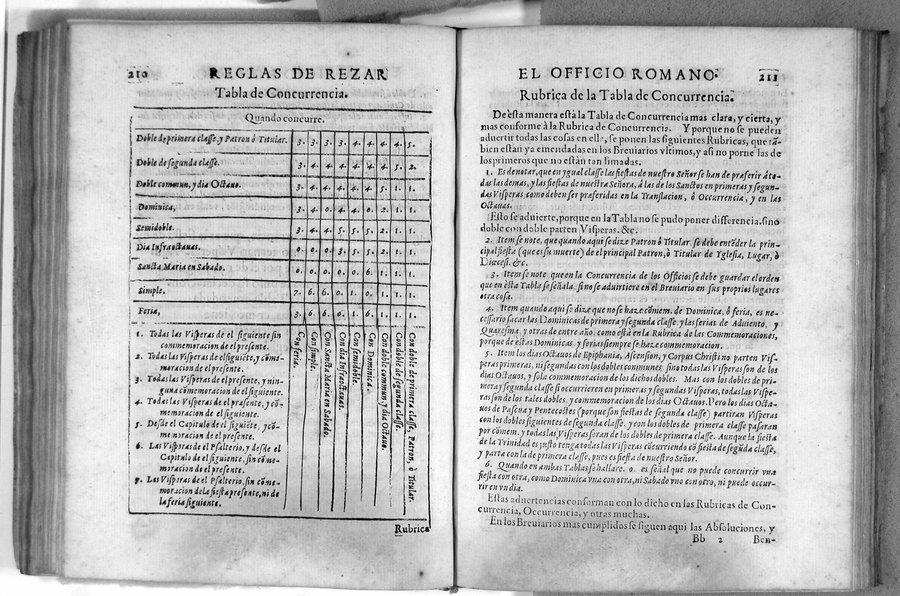 210 REGLAS DE REZAR
Tabla de Concurrencia.
Quando concurre.
Doble de primera classe, y Patron ò Titular. 3. 3. 3. 3. 4. 4. 4. 4. 5.
Doble de segunda classe. 3. 3. 3. 3. 4. 4. 4. 5. 2.
Doble commun, y dia Octauo. 3. 4. 4. 4. 4. 4. 5. 1. 1.
Dominica, 3. 4. 0. 4. 4. 0. 2. 1. 1.
Semidoble. 3. 4. 4. 5. 5. 5. 2. 1. 1.
Dia Infraoctauas. 0. 0. 0. 3. 5. 5. 2. 1. 1.
Sancta Maria en Sabado. 0. 0. 0. 0. 0. 6. 1. 1. 1.
Simple. 7. 6. 6. 0. 1. 0. 1. 1. 1.
Feria, 3. 6. 6. 0. 1. 6. 1. 1. 1.
1. Todas las Visperas de el siguiente sin
commemoracion de el presente.
2. Todas las Visperas de el siguiẽte, y cõme-
moracion de el presente.
3. Todas las Visperas de el presente, y nin-
guna cõmemoracion de el siguiente.
4. Todas las Visperas de el presente, y cõ-
memoracion de el siguiente.
5. Desde el Capitulo de el siguiẽte, y cõ-
memoracion de el presente.
6. Las Visperas de el Psalterio, y desde el
Capitulo de el siguiente, sin cõme-
moracion de el presente.
7. Las Visperas de el Psalterio, sin cõme-
moracion de la fiesta presente, ni de
la feria siguiente.
Con feria.
Con simple.
Con Sancta Maria en Sabado.
Con dia Infraoctauas.
Con semidoble.
Con Dominica.
Con doble commun, y dia Octauo.
Con doble de segunda classe.
Con doble de primera classe, Patron, ò Titular.
Rubrica
EL OFFICIO ROMANO. 211
Rubrica de la Tabla de Concurrencia.
De esta manera està la Tabla de Concurrencia mas clara, y cierto, y
mas conforme à la Rubrica de Concurrencia. Y porque no se pueden
advertir todas las cosas en ella, se ponen las siguientes Rubricas, que tã-
bien están ya emendadas en los Breuiarios vltimos, y asi no porne las de
los primeros que no están tan limadas.
1. Es de notar, que en ygual classe las fiestas de nuestro Señor se han de praeferir à to-
das las demas, y las fiestas de nuestra Señora, à las de los Sanctos en primeras y segun-
das Visperas como deben ser praeferidas en la Translacion, ò Occurrencia, y en las
Octauas.
Esto se aduierte, porque en la Tabla no se pudo poner differencia, sino
doble con doble parten Visperas. &c.
2. Item se note, que quando aqui se dize Patron ò Titular se debe entẽder la prin-
cipal fiesta (que es su muerte) de el principal Patron, ò Titular de Yglesia, Lugar, ò
Diocesi. &c.
3. Item se note que en la Concurrencia de los Officios se debe guardar el orden
que en esta Tabla se señala. sino se aduirtiere en el Breuiario en sus proprios lugares
otra cosa.
4. Item quando aqui se dize que no se haze cõmem. de Dominica, ò feria, es ne-
cessario sacar las Dominicas de primera y segunda classe. y las ferias de Aduiento, y
Quaresma, y otras de entre año, como està en la Rubrica de las Commemoraciones,
porque de estas Dominicas, y ferias siempre se haze commemoracion.
5. Item los dias Octauos de Epiphania, Ascension, y Corpus Christi no parten Vis-
peras primeras, ni segundas con los dobles communes, sino todas las Visperas son de los
dias Octauos, y sola commemoracion de los dichos dobles. Mas con los dobles de pri-
mera y segunda classe si occurrieren en primeras y segundas Visperas, todas las Vispe-
ras son de los tales dobles, y commemoracion de los dias Octauos. Pero los dias Octa-
uos de Pascua y Pentecostes (porque son fiestas de segunda classe) partiran Visperas
con dobles siguientes de segunda classe, y con los dobles de primera classe pasaran
por cõmem. y todas las Visperas seran de los dobles de primera classe. Aunque la fiesta
de la Trinidad es justo tenga todas las Visperas cõcurriendo cõ fiesta de segũda classe,
y parta con la de primera classe, pues es fiesta de nuestro Señor.
6. Quando en ambas Tablas se hallare. 0. es señal que no puede concurrir vna
fiesta con otra, como Dominica vna con otra, ni Sabado vno con otro, ni puede occur-
rir en vn dia.
Estas aduertencias conforman con lo dicho en las Rubricas de Con-
currencia, Occurrencia, y otras muchas.
En los Breuiarios mas cumplidos se siguen aqui las Absoluciones, y
Bb 2 Ben-